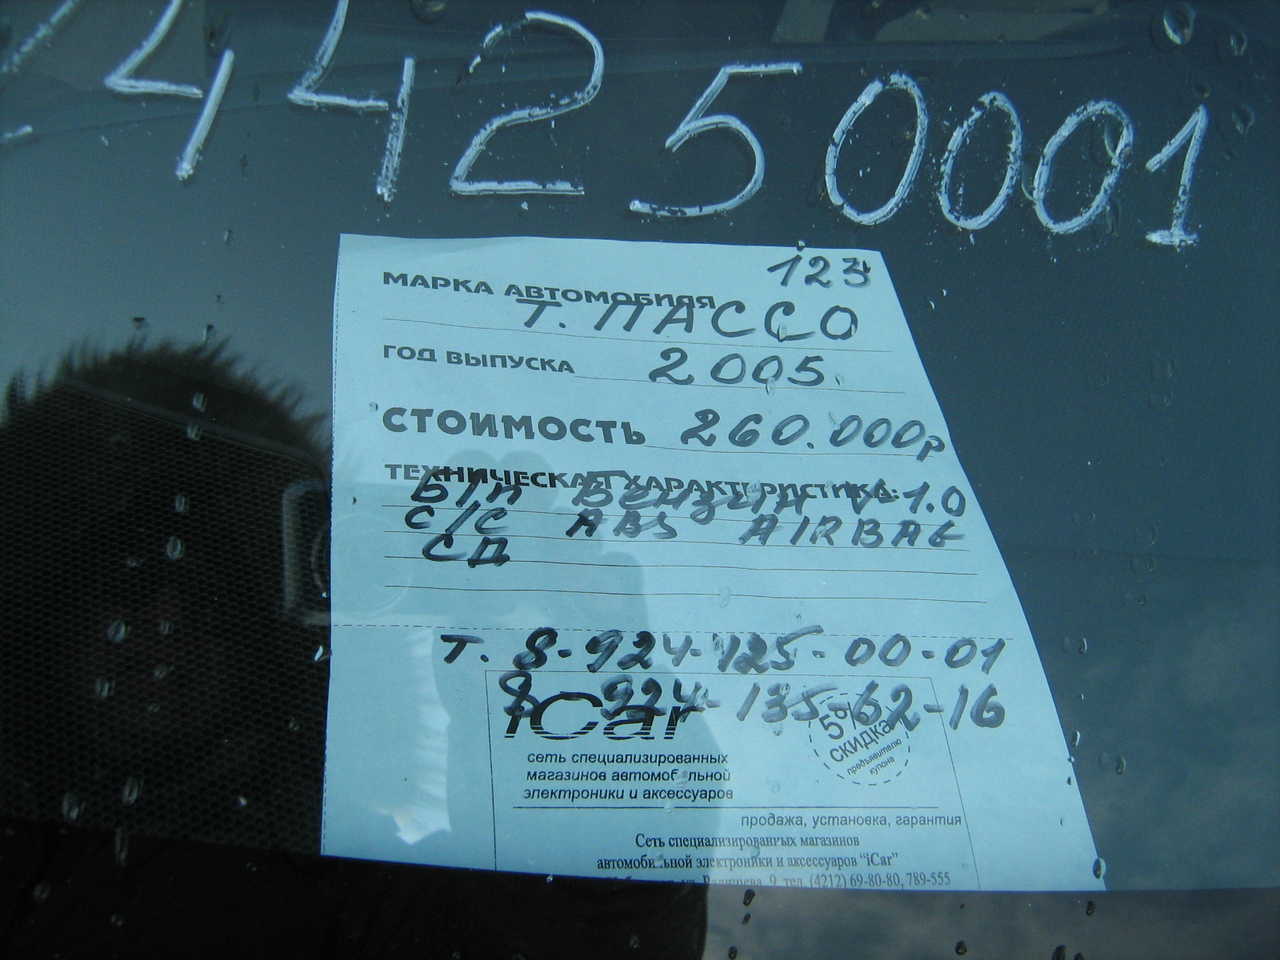 44250001
123
МАРКА АВТОМОБИЛЯ Т. ПАССО
ГОД ВЫПУСКА 2005.
СТОИМОСТЬ 260.000р
ТЕХНИЧЕСКАЯ ХАРАКТЕРИСТИКА:
Б/п Бензин V-1.0
С/С ABS AIRBAG
СД
Т. 8-924-125-00-01
8 924-135-62-16
iCar
5% СКИДКА
предъявителю
купона
сеть специализированных
магазинов автомобильной
электроники и аксессуаров
продажа, установка, гарантия
Сеть специализированных магазинов
автомобильной электроники и аксессуаров "iCar"
9, тел. (4212) 69-80-80, 789-555